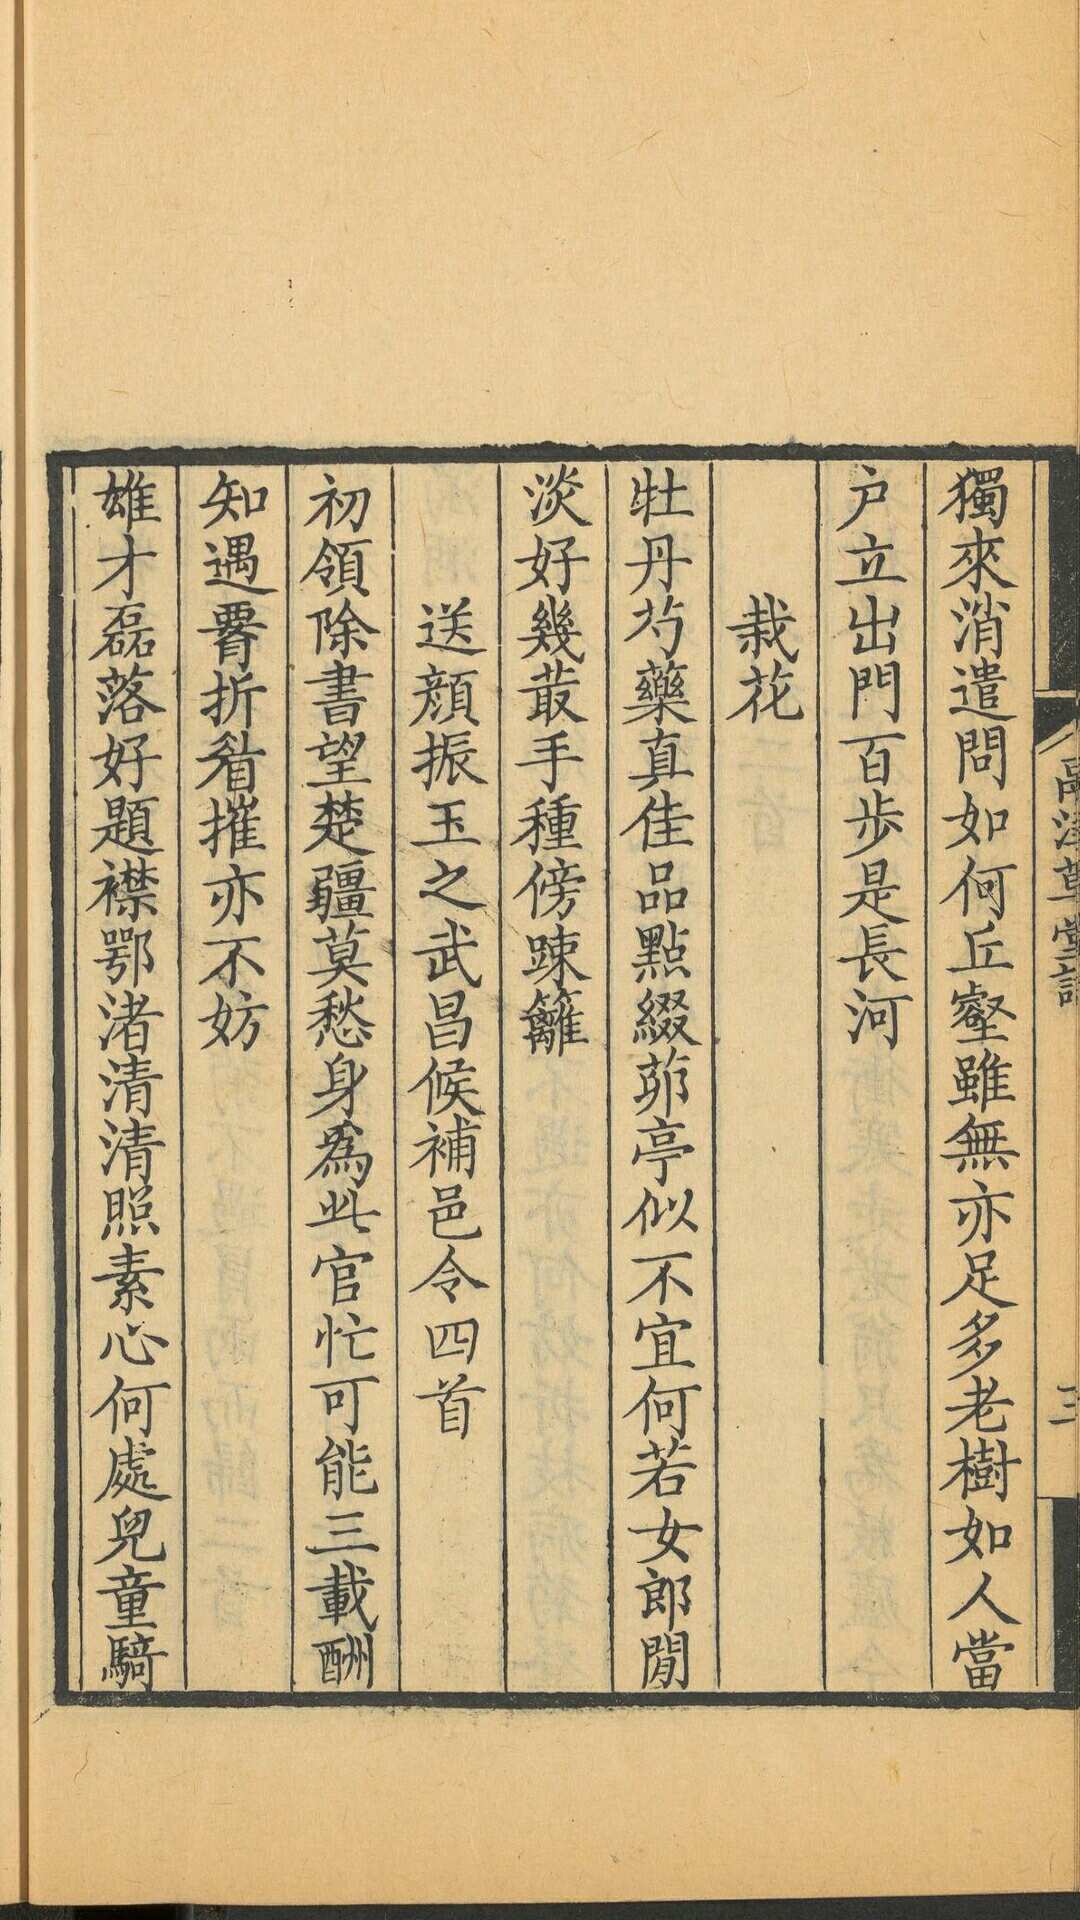 獨來消遣問如何丘壑雖無亦足多老樹如人當
户立出門百步是長河
栽花
牡丹芍藥真佳品點綴茆亭似不宜何若女郎閒
淡好幾叢手種傍踈籬
送顏振玉之武昌候補邑令四首
初領除書望楚疆莫愁身為此官忙可能三載酬
知遇脅折㫺摧亦不妨
雄才磊落好題襟鄂渚清清照素心何處兒童騎
草堂
三